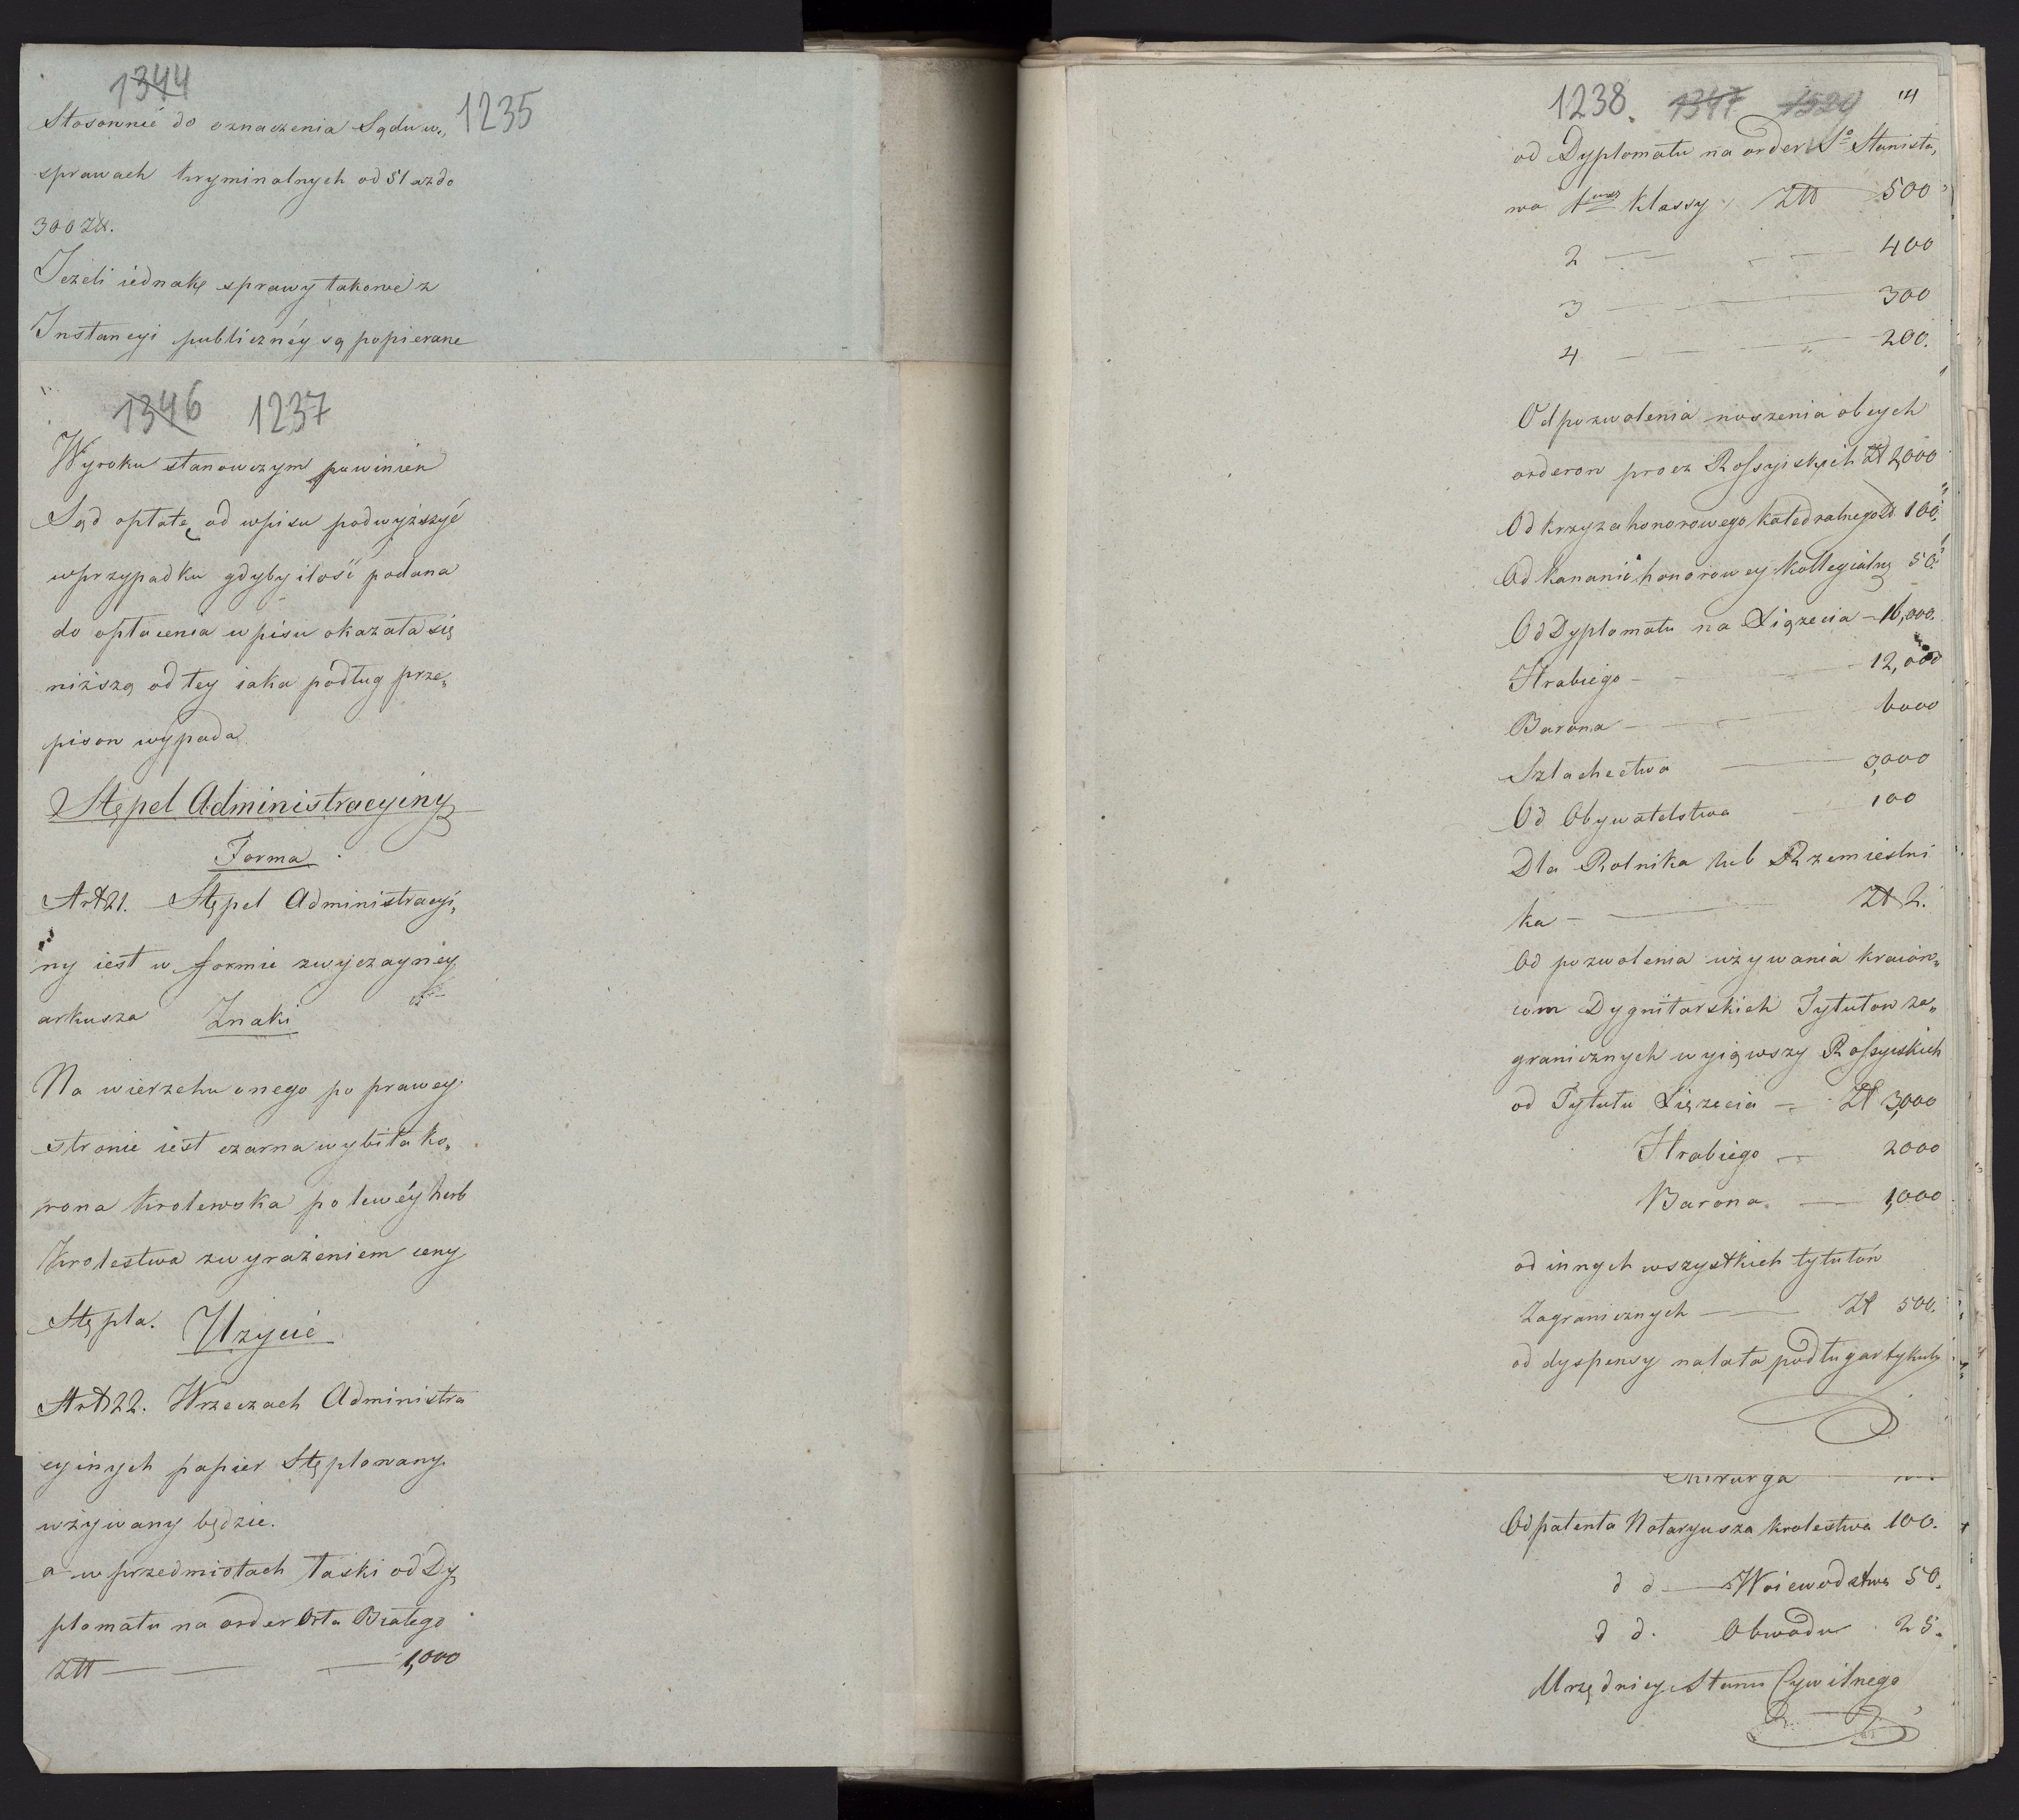 1344
1235
Stosownie do oznaczenia Sądu w„
sprawach kryminalnych od 51 aż do
300 Zł.
Jeżeli iednakę sprawy takowe z
Instancyi publicznéy są popierane
1346 1237
Wyroku stanowczym powinien
Sąd opłatę od wpisu podwyższyć
w przypadku gdyby ilość podana
do opłacenia wpisu okazała się
niższą od tey iaka podług prze„
pisow wypada
Stępel Administracyiny
Forma
Art 21. Stępel Administracyi„
ny iest w formie zwyczayney
arkusza Znaki
Na wierzchu onego po prawey
stronie iest czarna wybita ko„
rona Krolewska po lewéy herb
Krolestwa z wyrażeniem ceny
Stępla. Użycie
Art 22. W rzeczach Administra
cyinych papier Stęplowany
używany będzie.
a w przedmiotach łaski od Dy„
plomatu na order Orła Białego
Złł — — — 1,000
1238. 1347 1529 14
od Dyplomatu na order Sº Stanisła„
wa 1wszej klassy Złł 500
2 — — 400
3 — — 300
4 — — 200.
Od pozwolenia noszenia obcych
orderow procz Rossyiskich Zł 2,000
Od krzyża honorowego Katedralnego Zł 100.
Od kanonii honorowey Kollegialnę 50.
Od Dyplomatu na Xiązecia — 16,000.
Hrabiego — — 12,000
Barona — — 6000
Szlachectwa — 3,000
Od Obywatelstwa — 100
Dla Rolnika lub Rzemieslni
ka — — Zł 2.
Od pozwolenia używania kraiow„
com Dygnitarskich Tytułow za„
granicznych wyiąwszy Rossyiskich
od Tytułu Xiązecia — Zł 3,000
Hrabiego — 2000
Barona. — 1,000
od innych wszystkich tytułów
Zagranicznych — Zł 500.
od dyspensy na lata podług artykułu
Chirurga
Od patentu Notaryusza krolestwa 100.
d d — Woiewodztwa 50.
d d. Obwodu 25.
Urzędnicy Stanu Cywilnego